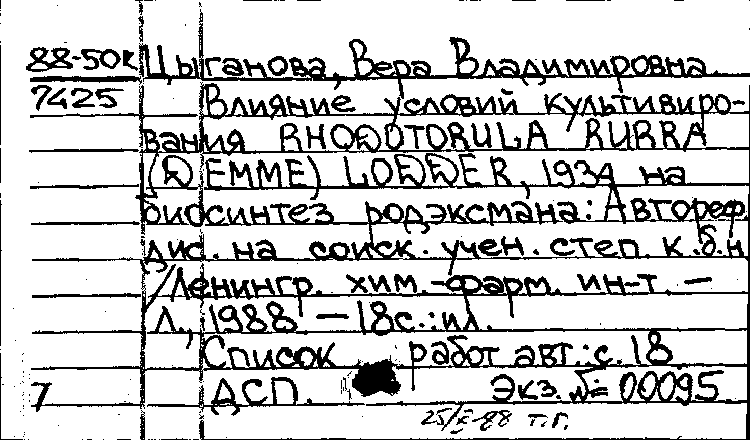 88-50к Цыганова, Вера Владимировна.
7425 Влияние условий культивиро-
вания RHODOTORULA RUBRA
(DEMME) LODDER, 1934 на
биосинтез родэксмана: Автореф.
дис. на соиск. учен. степ. к.б.н
/Ленингр. хим.-фарм. ин-т. –
Л., 1988 – 18с.:ил.
Список работ авт.: с. 18
7 ДСП. Экз. № 00095
т.г.